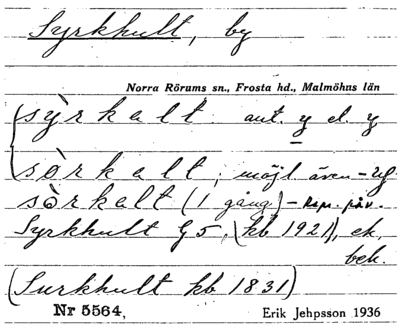 Syrkhult, by
Norra Rörums sn., Frosta hd., Malmöhus län
sỳrkalt ant. y el. y
sòrkalt, möjl. även -ug-
sòrkalt (1 gång) - Rep. påv.
Syrkhult G5, (kb 1921), ek. bek.
(Surkhult kb 1831)
Nr 5564, Erik Jehpsson 1936